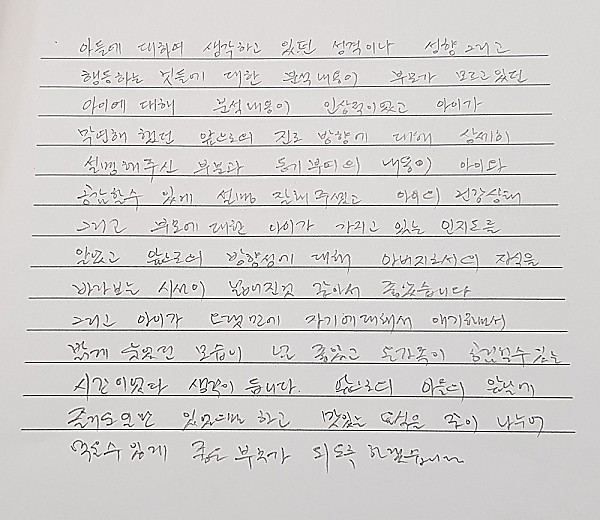 아들에 대하여 생각하고 있던 성격이나 성향 그리고
행동하는 것들에 대한 분석내용이 부모가 모르고 있던
아이에 대해 분석내용이 인상적이였고 아이가
막연해 했던 앞으로의 진로 방향에 대해 상세히
설명해주신 부분과 동기부여의 내용이 아이와
공감할수 있게 설명 잘해주셨고 아이의 건강상태
그리고 부모에 대한 아이가 가지고 있는 인지도를
알았고 앞으로의 방향성에 대해 아버지로서의 자식을
바라보는 시선이 넓어진것 같아서 좋았습니다
그리고 아이가 오랫만에 자기에대해서 얘기하면서
밝게 웃었던 모습이 넘 좋았고 온가족이 공감할수 있는
시간이였다 생각이 듭니다. 앞으로의 아들의 앞날에
즐거운 일만 있었으면 하고 맛있는 음식을 같이 나누어
먹을수 있게 좋은 부모가 되도록 하겠습니다